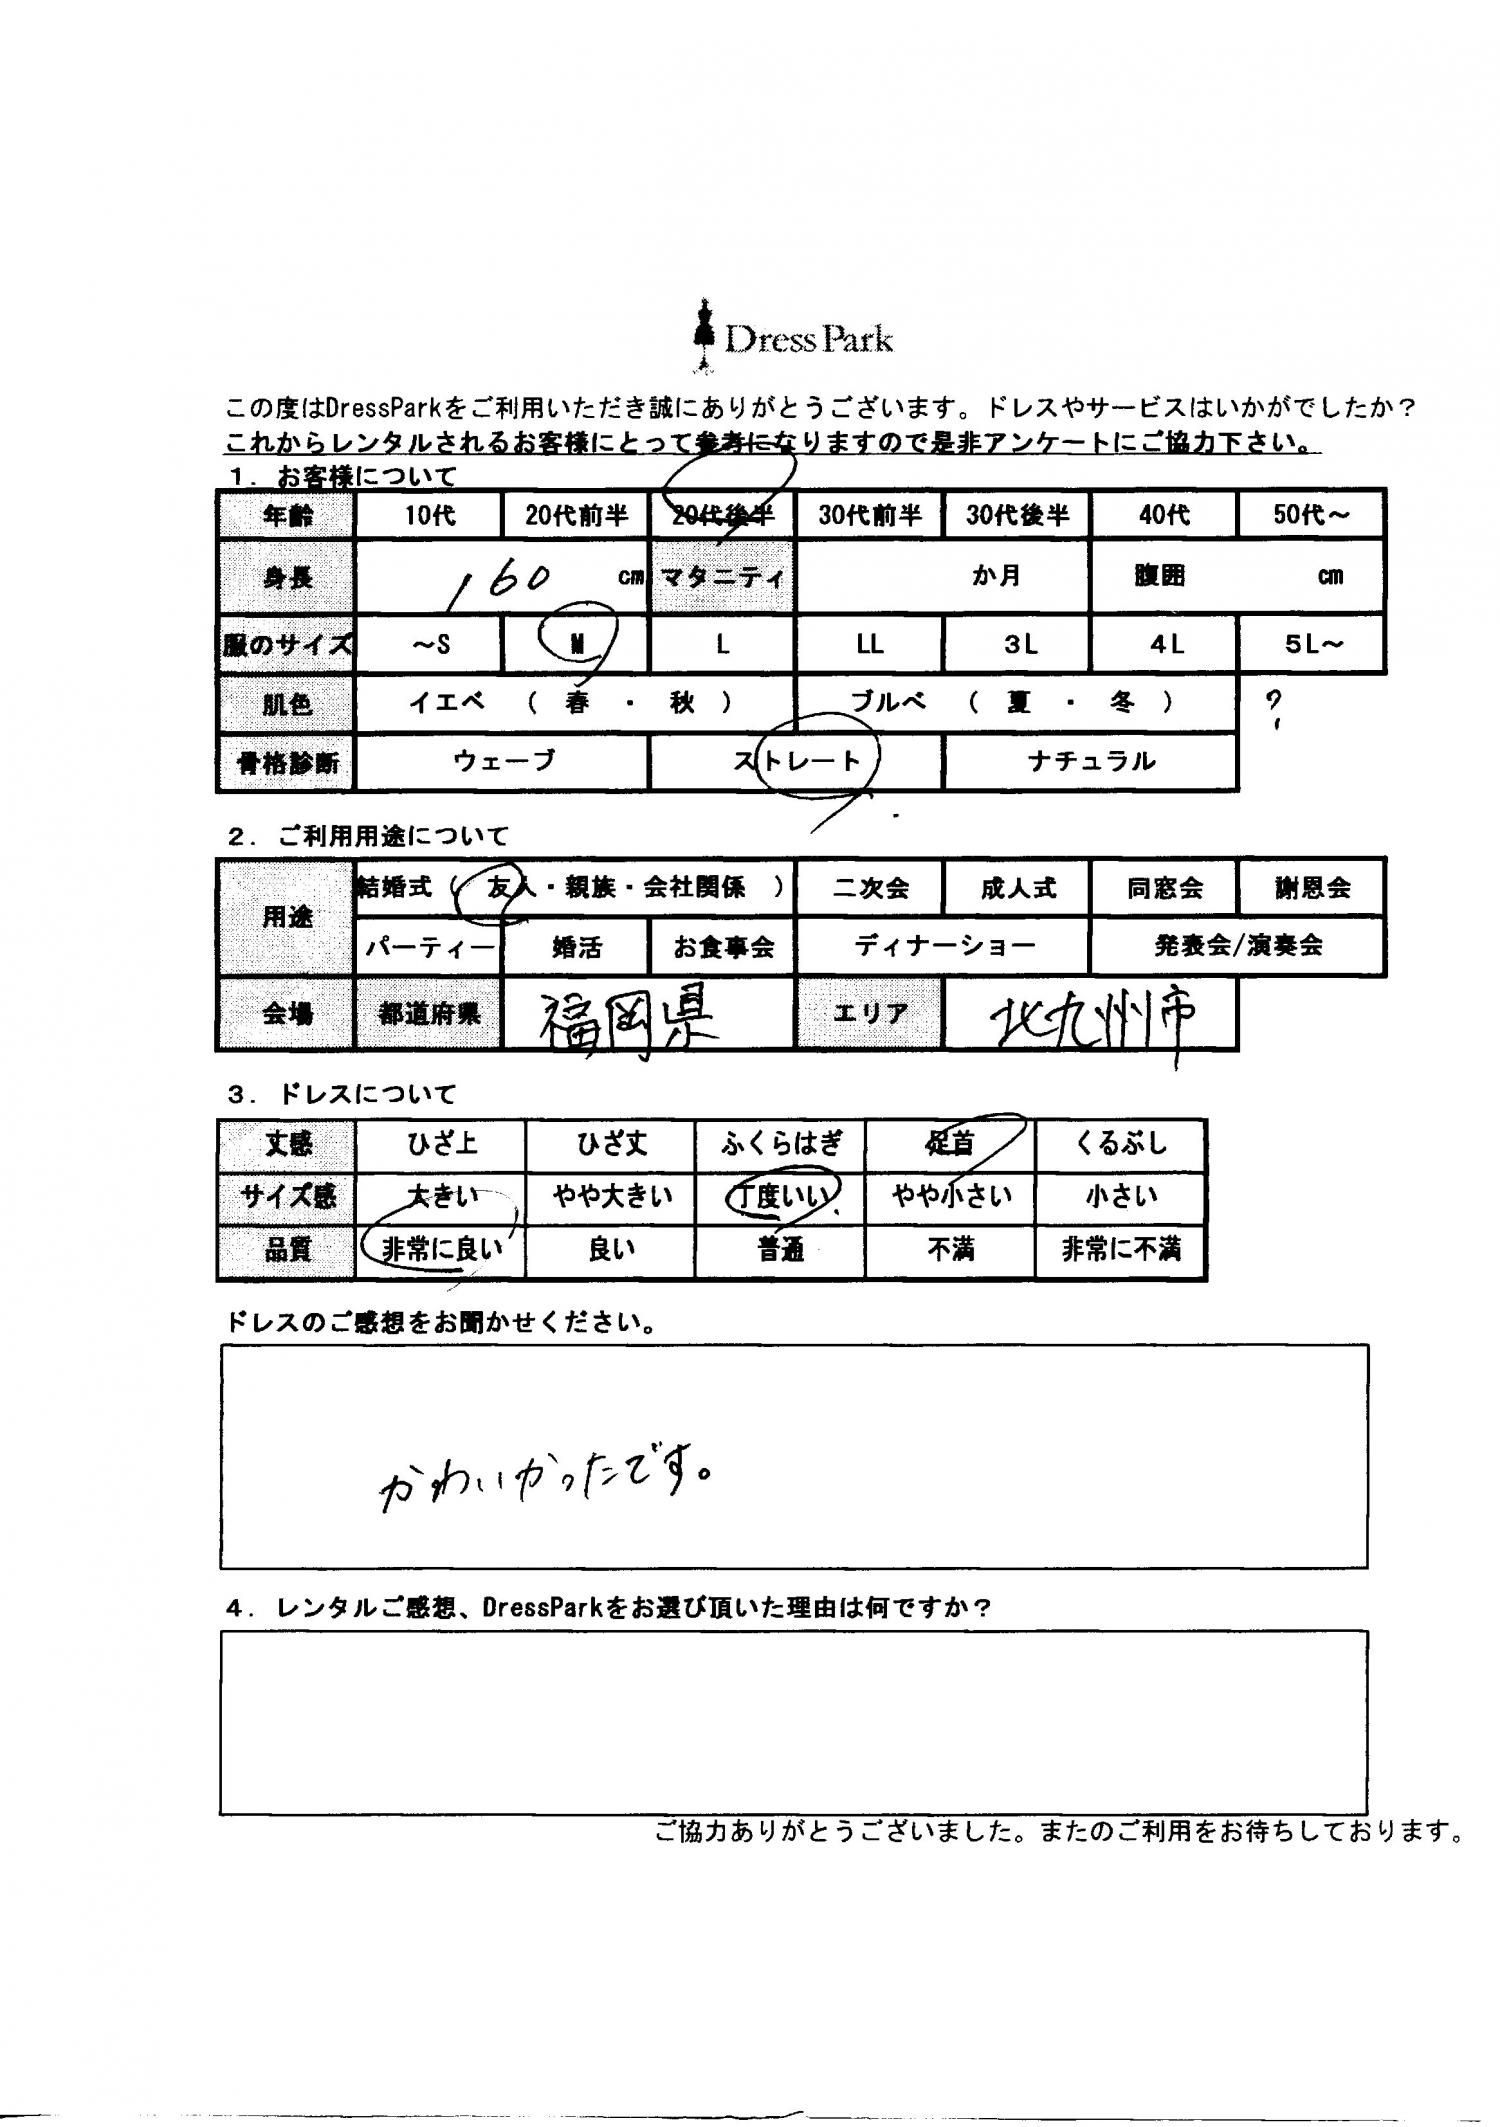 Dress Park
この度はDressParkをご利用いただき誠にありがとうございます。ドレスやサービスはいかがでしたか？
これからレンタルされるお客様にとって参考になりますので是非アンケートにご協力下さい。
１．お客様について
年齢 10代 20代前半 20代後半 30代前半 30代後半 40代 50代～
身長 160 cm マタニティ か月 腹囲 cm
服のサイズ ～S M L LL 3L 4L 5L～
肌色 イエベ （ 春 ・ 秋 ） ブルベ （ 夏 ・ 冬 ） ?
骨格診断 ウェーブ ストレート ナチュラル
２．ご利用用途について
用途 結婚式（ 友人・親族・会社関係 ） 二次会 成人式 同窓会 謝恩会
パーティー 婚活 お食事会 ディナーショー 発表会/演奏会
会場 都道府県 福岡県 エリア 北九州市
３．ドレスについて
丈感 ひざ上 ひざ丈 ふくらはぎ 足首 くるぶし
サイズ感 大きい やや大きい 丁度いい やや小さい 小さい
品質 非常に良い 良い 普通 不満 非常に不満
ドレスのご感想をお聞かせください。
かわいかったです。
４．レンタルご感想、DressParkをお選び頂いた理由は何ですか？
ご協力ありがとうございました。またのご利用をお待ちしております。